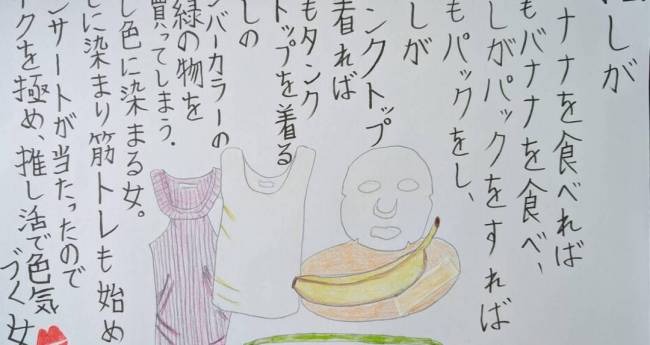 しが
ナナを食べれば
もバナナを食べ、
しがパックをすれば
もパックをし、
しが
ンクトップ
着れば
もタンク
トップを着る
しの
ンバーカラーの
緑の物を
買ってしまう.
し色に染まる女。
に染まり筋トレも始め
ンサートが当たったので
クを極め、推し活で色気
づく女